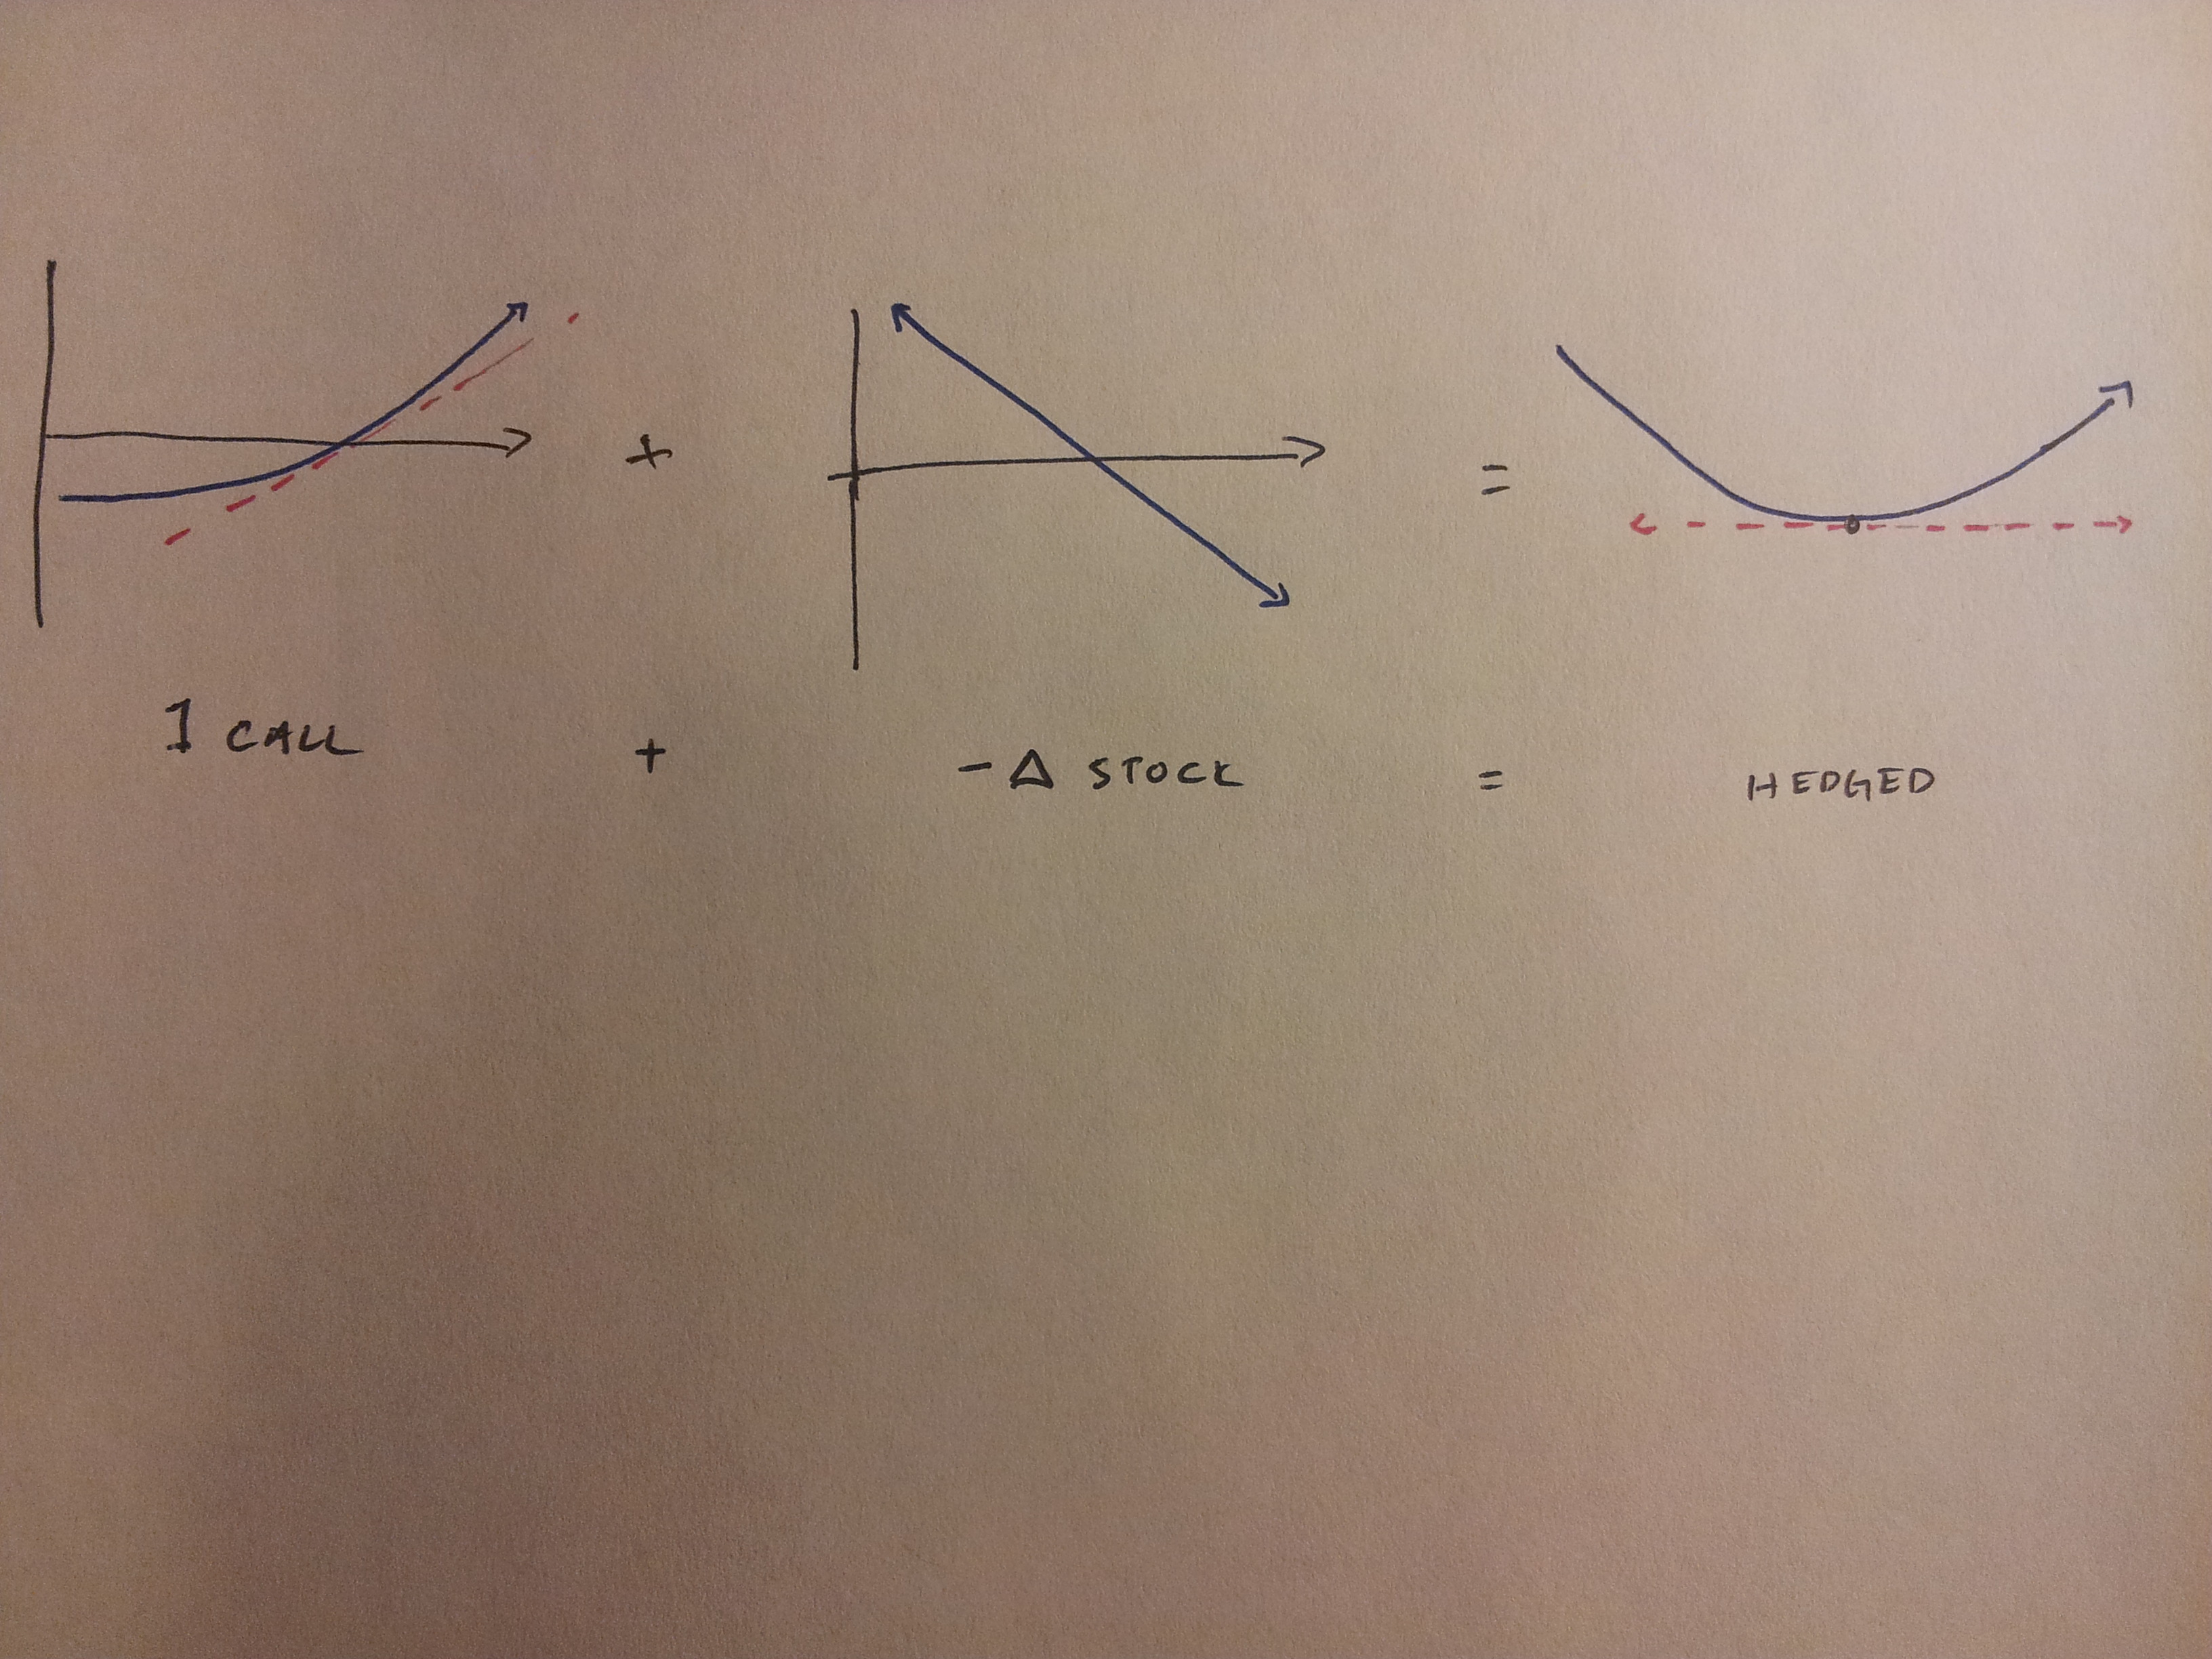 + =
1 CALL + - Δ STOCK = HEDGED